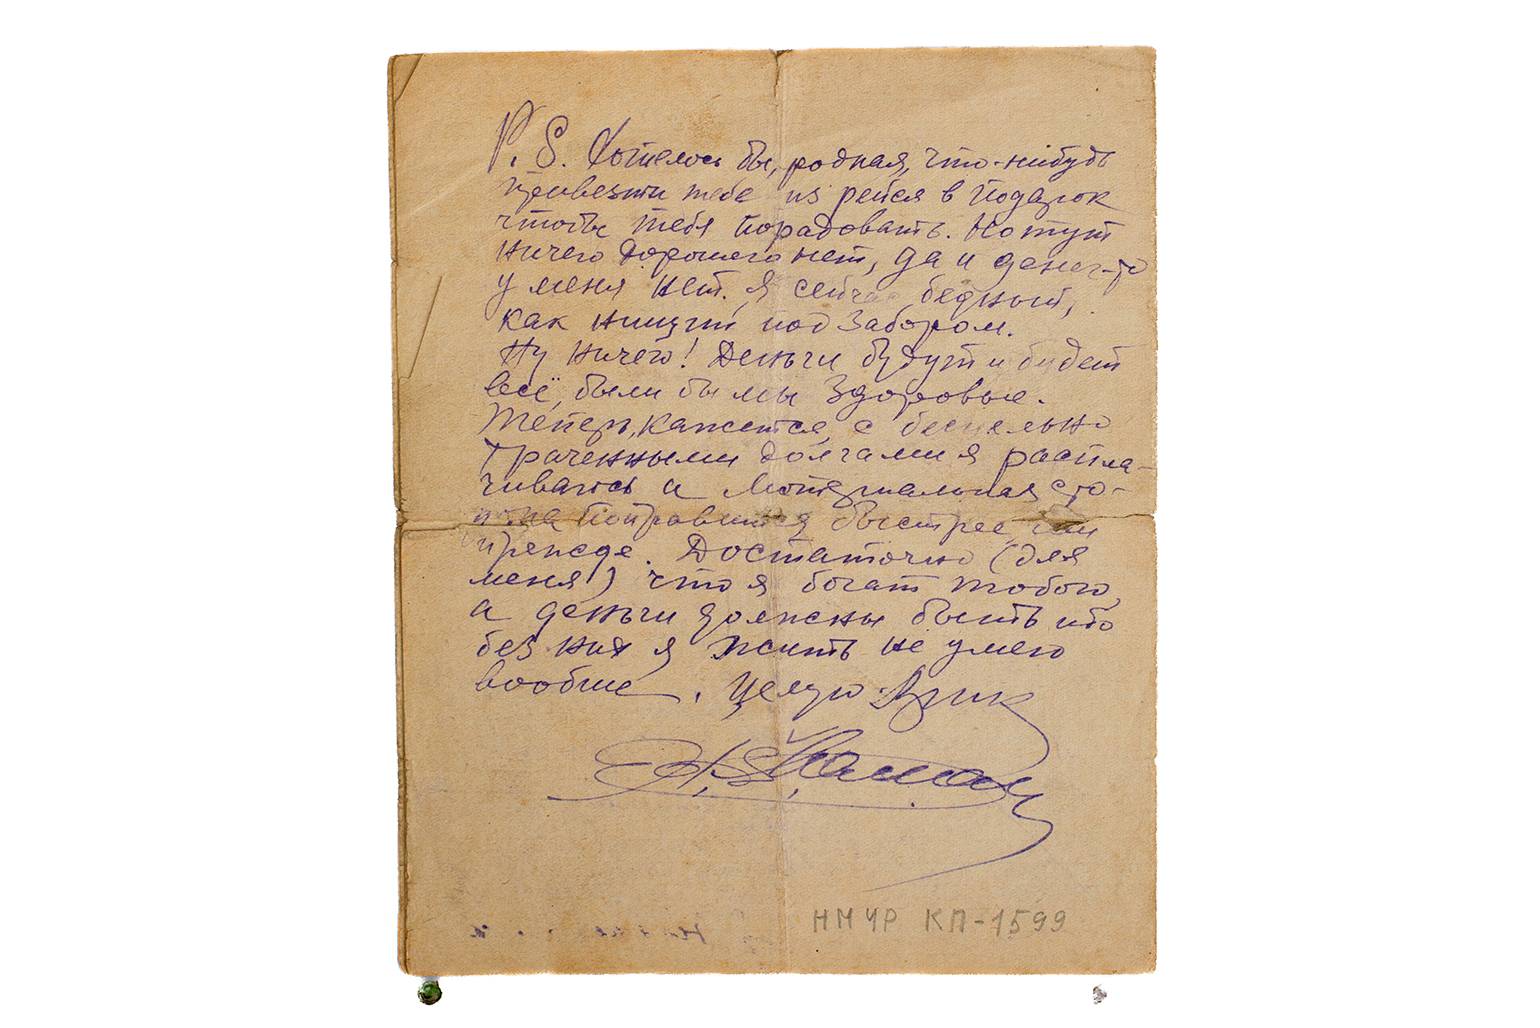 P.S. Хотелось бы, родная, что-нибудь
привезти тебе из рейса в подарок
чтобы тебя порадовать. Но тут
ничего хорошего нет, да и денег-то
у меня нет. Я сейчас бедный,
как нищий под забором.
Ну ничего! Деньги будут и будет
всё, были бы мы здоровые.
Теперь, кажется, с бесцельно
траченными долгами я распла-
чиваюсь и материальная сто-
рона поправится быстрее, чем
прежде. Достаточно (для
меня) что я богат тобою,
а деньги должны быть ибо
без них я жить не умею
вообще. Целую
НМЧР КП-1599